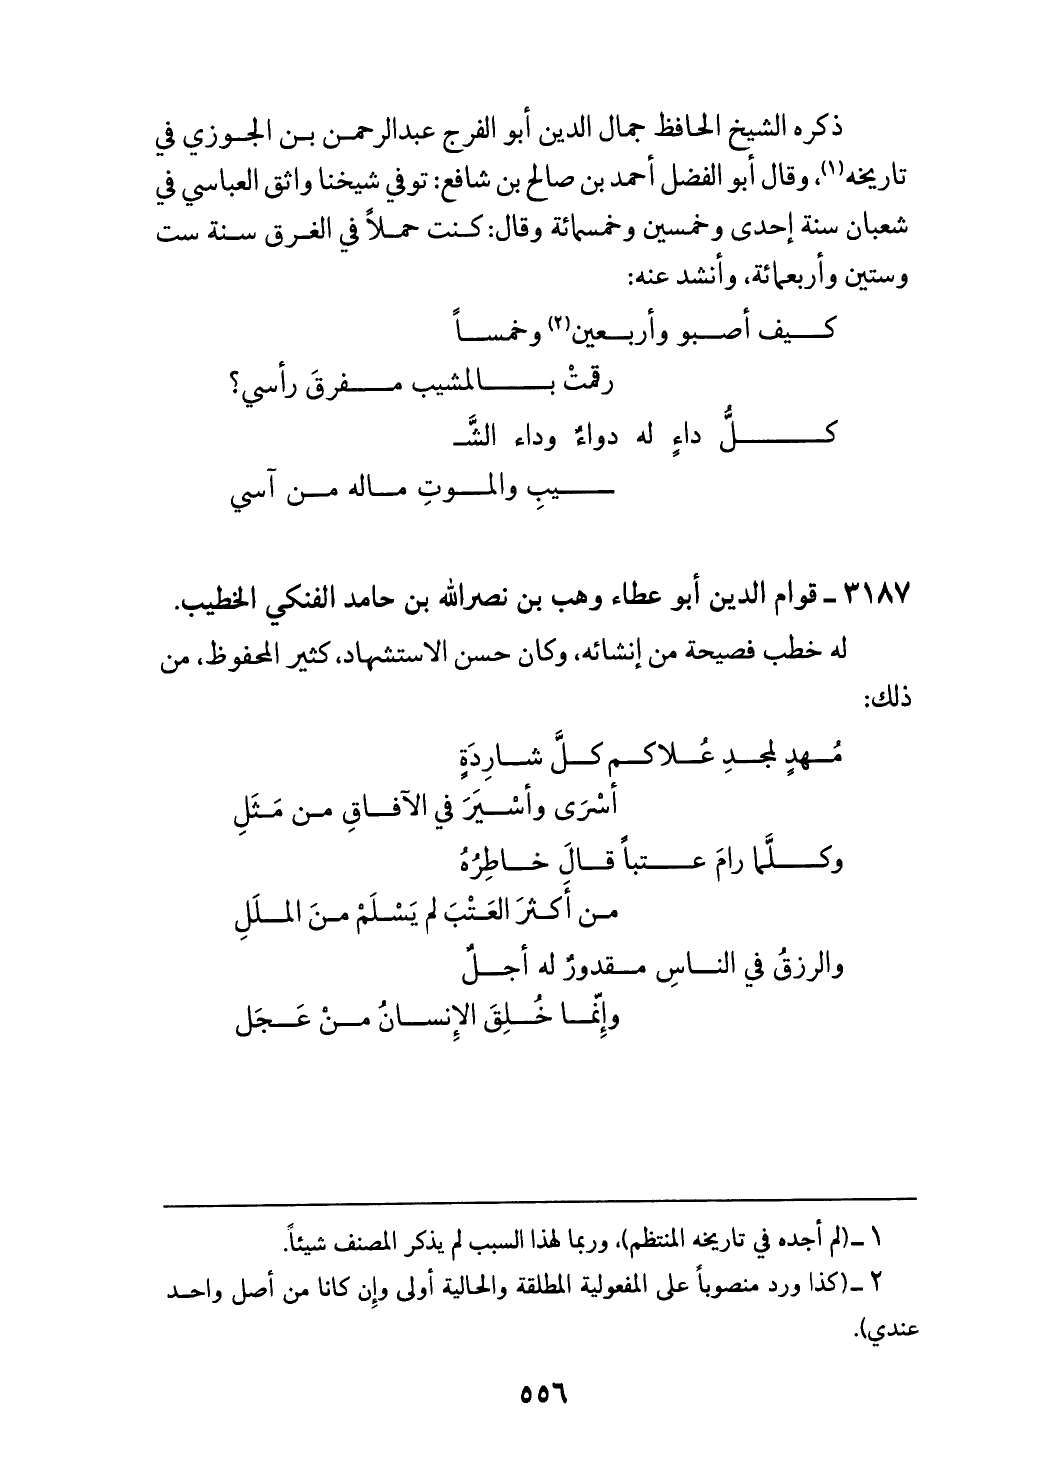 ذكره الشيخ الحافظ جمال الدين أبو الفرج عبدالرحمن بن الجوزي في
تاريخه(١)، وقال أبو الفضل أحمد بن صالح بن شافع: توفي شيخنا واثق العباسي في
شعبان سنة إحدى وخمسين وخمسمائة وقال: كنت حملاً في الغرق سنة ست
وستين وأربعمائة، وأنشد عنه:
كيف أصبو وأربعين(٢) وخمساً
رقمتْ بالمشيب مفرقَ رأسي؟
كلُّ داءٍ له دواءٌ وداء الشَّـ
ـيبِ والموتِ ماله من آسي
٣١٨٧ ـ قوام الدين أبو عطاء وهب بن نصرالله بن حامد الفنكي الخطيب.
له خطب فصيحة من إنشائه، وكان حسن الاستشهاد، كثير المحفوظ، من
ذلك:
مُهدٍ لمجدِ عُلاكم كلَّ شارِدَةٍ
أسْرَى وأسْيَرَ في الآفاقِ من مَثَلِ
وكلَّما رامَ عتباً قالَ خاطِرُهُ
من أَكثرَ العَتْبَ لم يَسْلَمْ منَ المللِ
والرزقُ في الناسِ مقدورٌ له أجلٌ
وإِنّما خُلِقَ الإِنسانُ منْ عَجَل
١ ـ(لم أجده في تاريخه المنتظم)، وربما لهذا السبب لم يذكر المصنف شيئاً.
٢ ـ(كذا ورد منصوباً على المفعولية المطلقة والحالية أولى وإِن كانا من أصل واحد
عندي).
٥٥٦